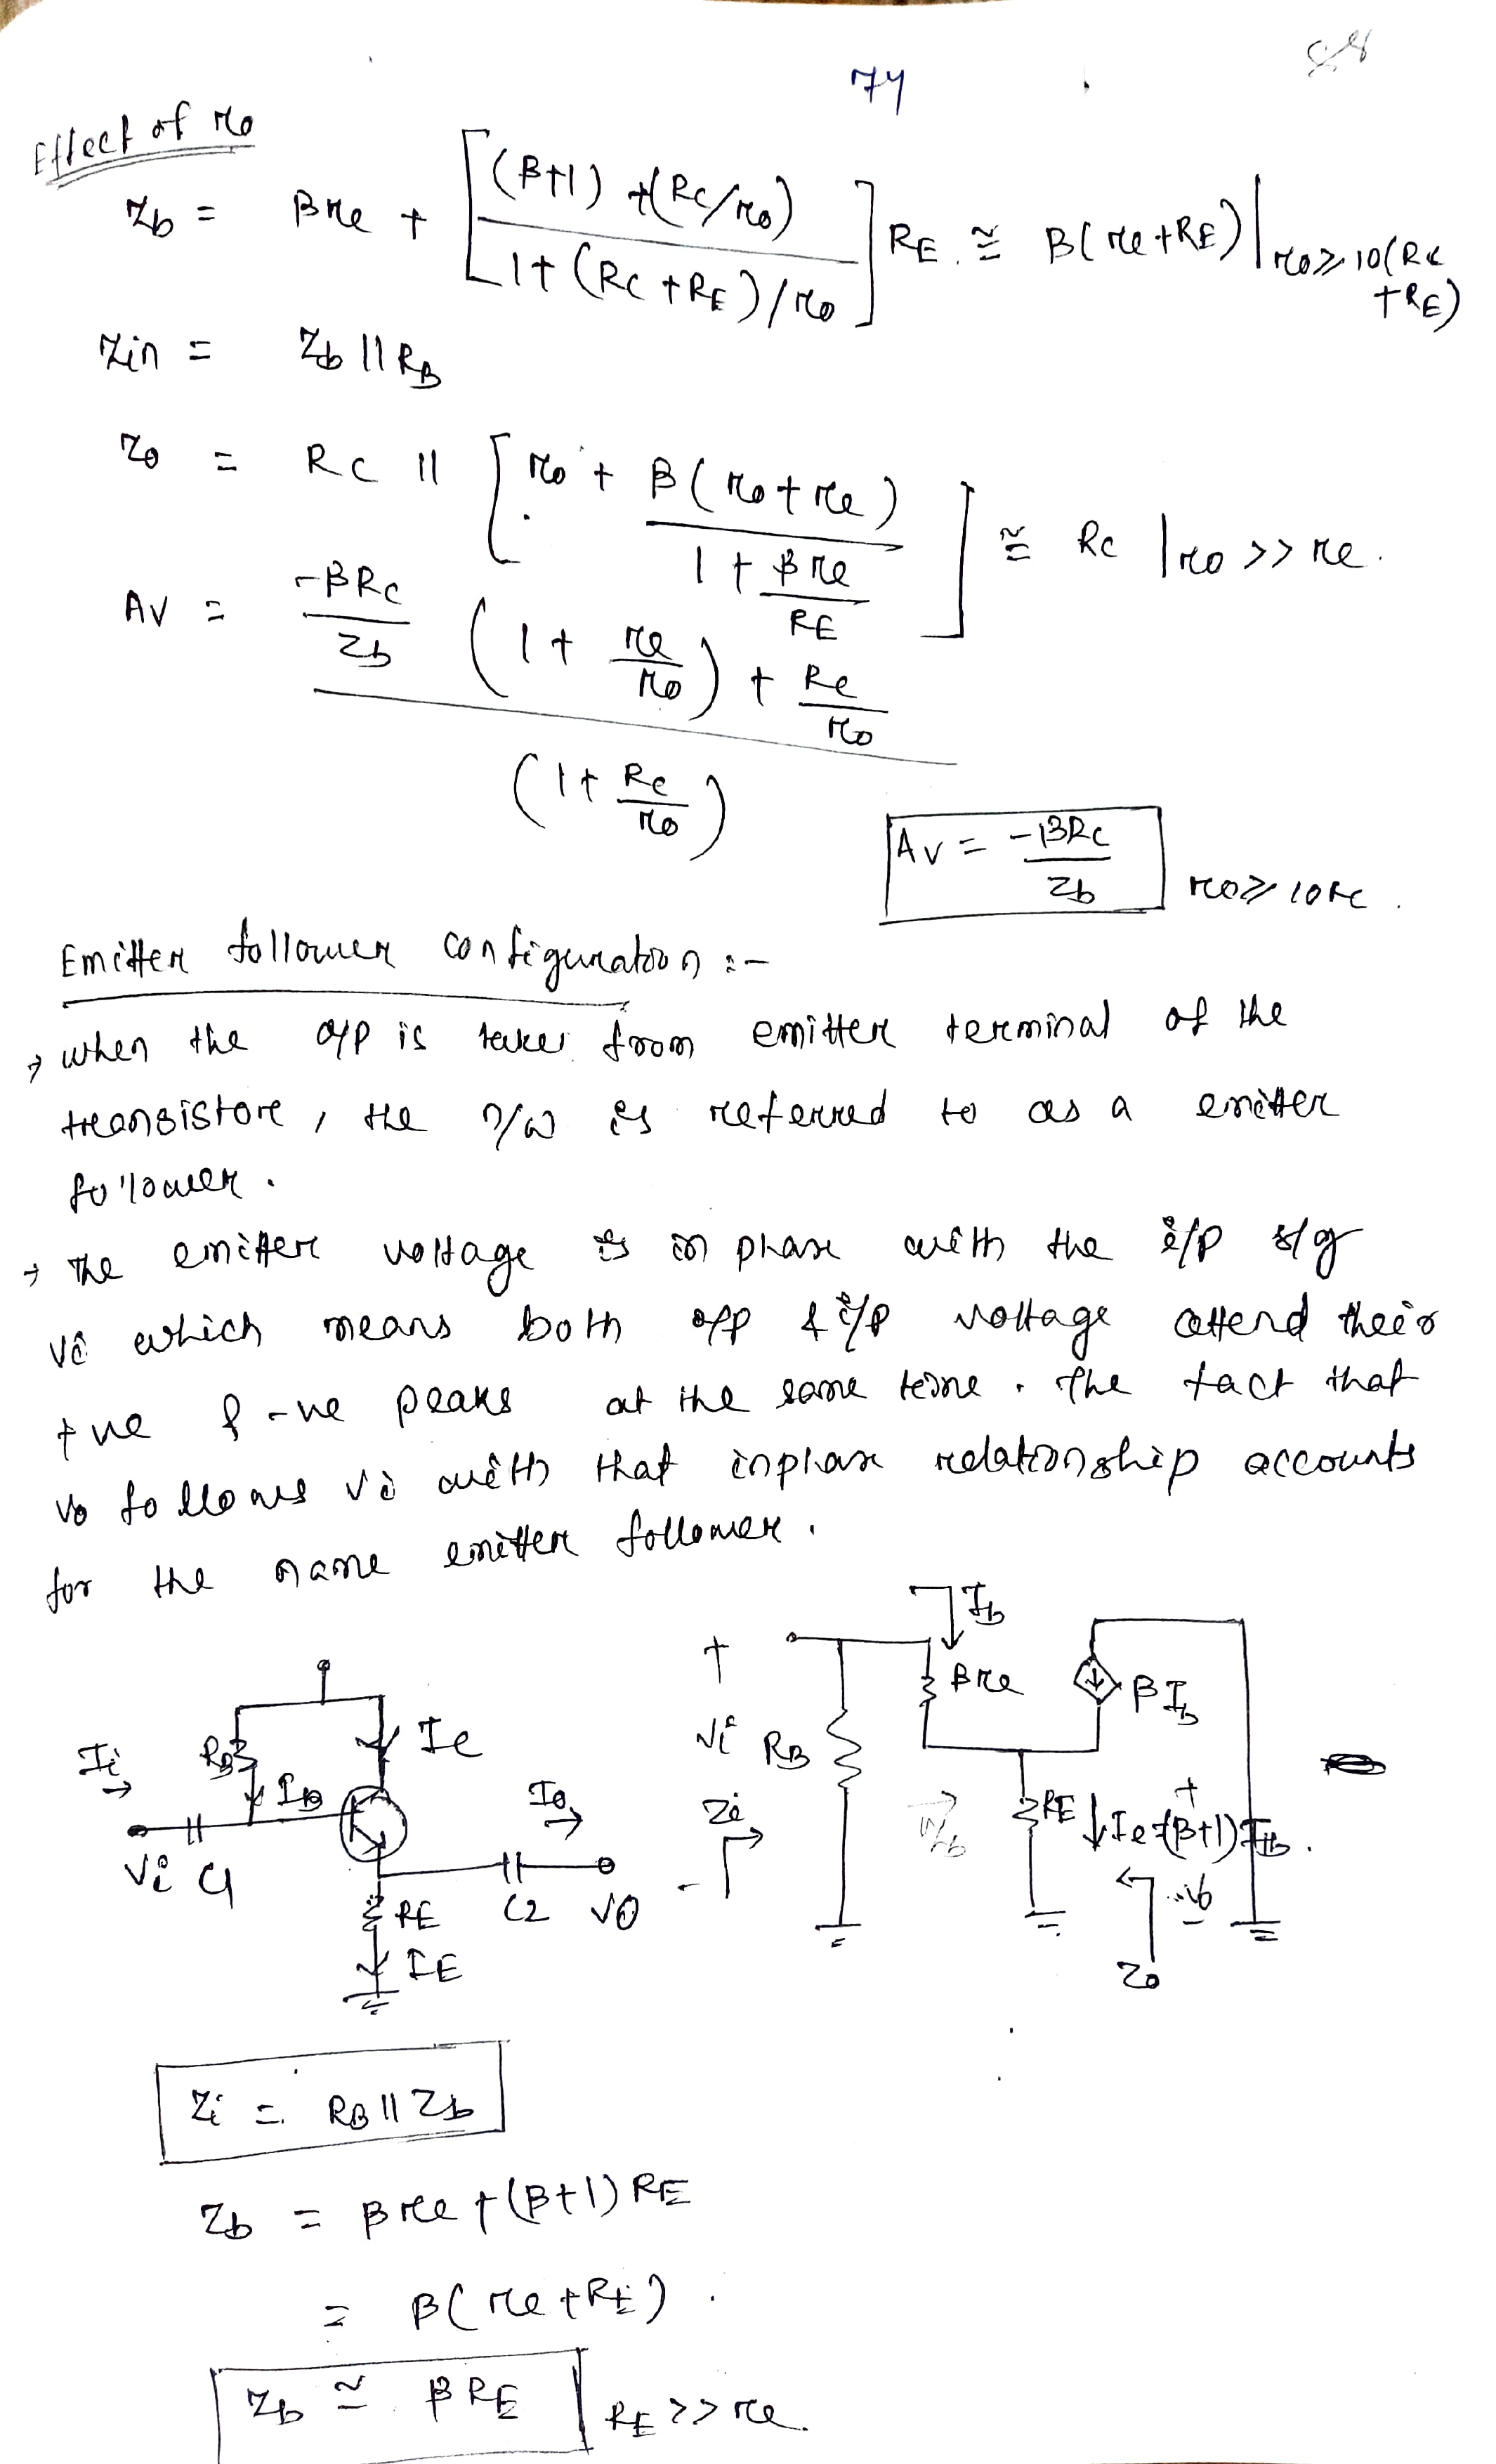 74
Effect of ro
Zb = Bre + [ (B+1) + (Rc/ro) / 1 + (RC + RE)/ro ] RE ≅ B(re+RE) | ro ≥ 10(Rc + RE)
Zin = Zb || RB
Zo = RC || [ ro + B(ro + re) / 1 + Bre/RE ] ≅ Rc | ro >> re.
AV = -BRc/Zb (1 + re/ro) + Rc/ro
(1 + Rc/ro)
AV = -BRc/Zb ro ≥ 10Rc.
Emitter follower configuration :-
→ when the o/p is taken from emitter terminal of the
transistor, the n/w is referred to as a emitter
follower.
→ The emitter voltage is in phase with the i/p s/g
Vi which means both o/p & i/p voltage attend their
+ve & -ve peaks at the same time. The fact that
Vo follows Vi with that inphase relationship accounts
for the name emitter follower.
Ii
RB
IB
Ic
Io
Vi C1
RE
C2 VO
IE
Ib
+
Vi
RB
Bre
βIb
Zi
-
Zb
RE
Ie=(B+1)Ib.
+
Vo
-
Zo
Zi = RB || Zb
Zb = Bre + (B+1) RE
= B(re + RE).
Zb ≅ BRE | RE >> re.